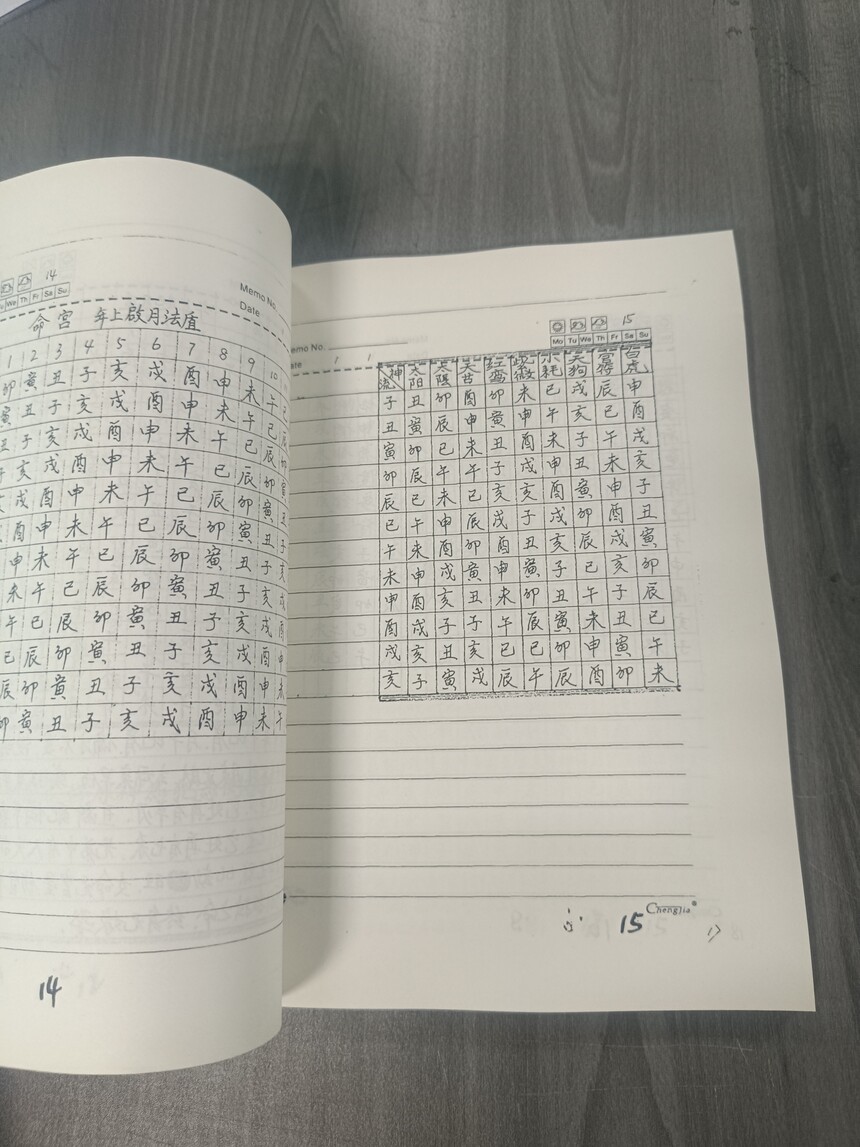 14
We Th Fr Sa Su
Memo No.
Date
命宫 年上啟月法值
1 2 3 4 5 6 7 8 9 10
卯 寅 丑 子 亥 戌 酉 申 未 午 巳
寅 丑 子 亥 戌 酉 申 未 午 巳 辰
丑 子 亥 戌 酉 申 未 午 巳 辰 卯
子 亥 戌 酉 申 未 午 巳 辰 卯 寅
亥 戌 酉 申 未 午 巳 辰 卯 寅 丑
酉 申 未 午 巳 辰 卯 寅 丑 子
申 未 午 巳 辰 卯 寅 丑 子 亥
未 午 巳 辰 卯 寅 丑 子 亥 戌
午 巳 辰 卯 寅 丑 子 亥 戌 酉
巳 辰 卯 寅 丑 子 亥 戌 酉 申
辰 卯 寅 丑 子 亥 戌 酉 申 未
卯 寅 丑 子 亥 戌 酉 申 未 午
14
15
Memo No.
Date / /
Mo Tu We Th Fr Sa Su
神流 太阳 太陰 红鸾 小耗 天狗 白虎
子 丑 卯 酉 卯 未 巳 戌 辰 申
丑 寅 辰 申 寅 申 午 亥 巳 酉
寅 卯 巳 未 丑 酉 未 子 午 戌
卯 辰 午 午 子 戌 申 丑 未 亥
辰 巳 未 巳 亥 亥 酉 寅 申 子
巳 午 申 辰 戌 子 戌 卯 酉 丑
午 未 酉 卯 酉 丑 亥 辰 戌 寅
未 申 戌 寅 申 寅 子 巳 亥 卯
申 酉 亥 丑 未 卯 丑 午 子 辰
酉 戌 子 子 午 辰 寅 未 丑 巳
戌 亥 丑 亥 巳 巳 卯 申 寅 午
亥 子 寅 戌 辰 午 辰 酉 卯 未
15